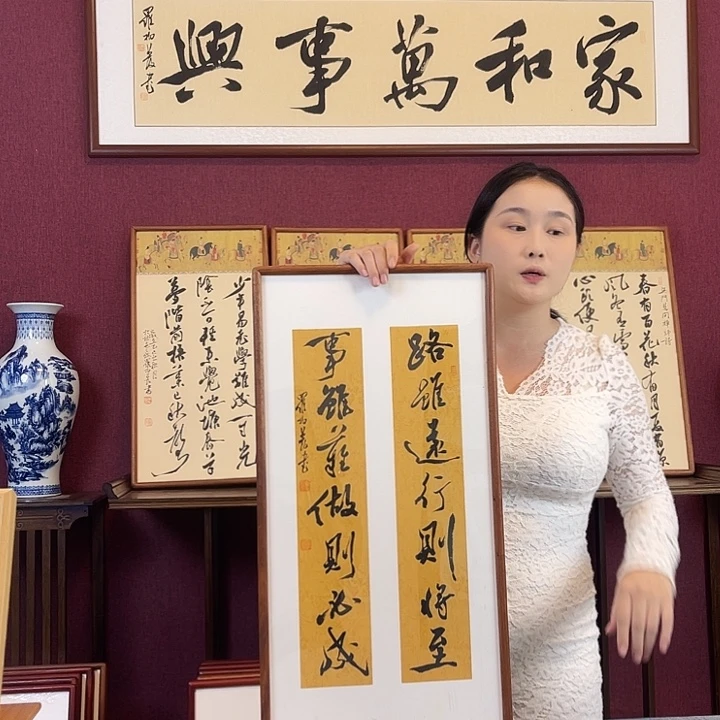 家和萬事興
路雖遠行則將至
事雖難做則必成
少年易老學難成一寸光
陰不可輕未覺池塘春草
夢階前梧葉已秋聲
春有百花秋有月夏有涼
風冬有雪
心頭便